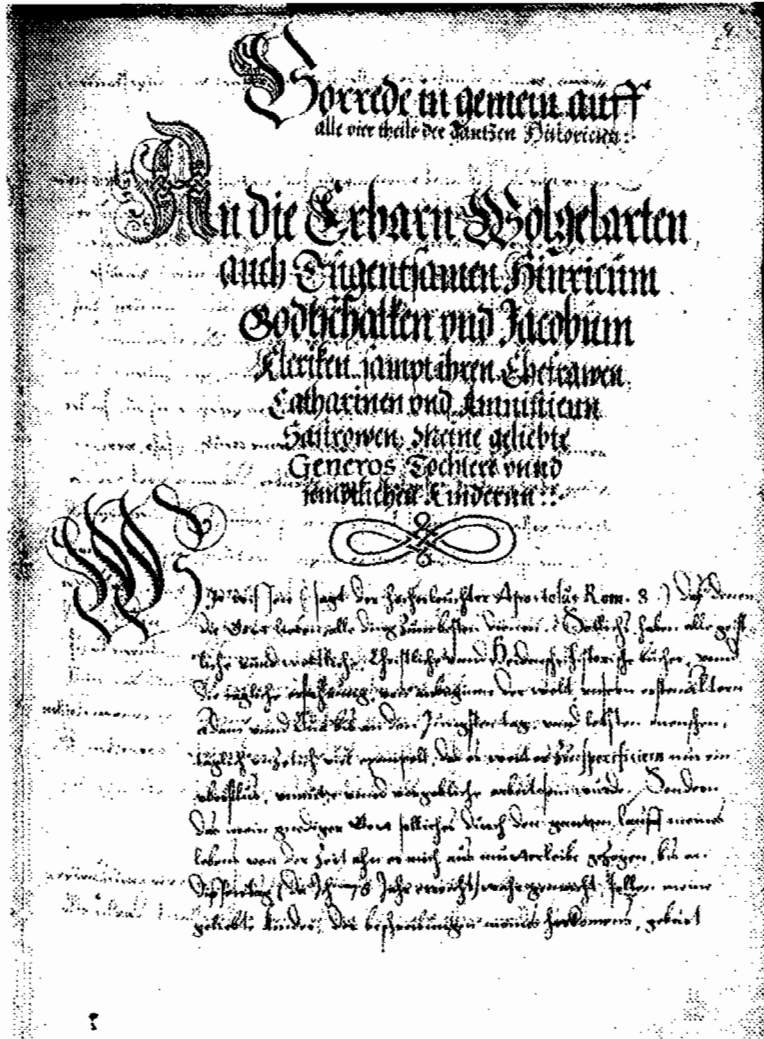 Vorrede in gemein auff
alle vier theile der Gantzen Historien:
An die Erbarn Wolgelarten
auch Tugentsamen Hinricum
Godtschalken vnd Jacobum
Kleriken sampt ihren Ehefrawen
Catharinen vnd Amnistien
Sastrowen, Meine geliebte
Generos Tochtere vnnd
semptlichen Kindern:
Wir wissen (sagt der hocherleuchter Apostolus Rom. 8.) das denen
die Gott lieben, alle ding zum besten dienen. Solichs haben alle geist
liche vnnd weltliche, Christliche vnnd Heidensche historische bucher, vnnd
die tägliche erfahrung, von anbeginne der welt, vnsern ersten Eltern
Adam vnnd Eua bis an den Jungsten tag, vnnd letzten menschen,
das er weiter zu specificiern nur ein
vberflus, vnnutze vnnd vergebliche arbeit sein wurde, Sondern
das mein gnediger Gott solliches durch den gantzen lauff meines
lebens von der zeit ahn er mich aus mutterleibe gezogen, bis an
Jhar erreicht) wahr gemacht, sollen meine
geliebte kinder, der beschreibungen meines herkomens, geburt